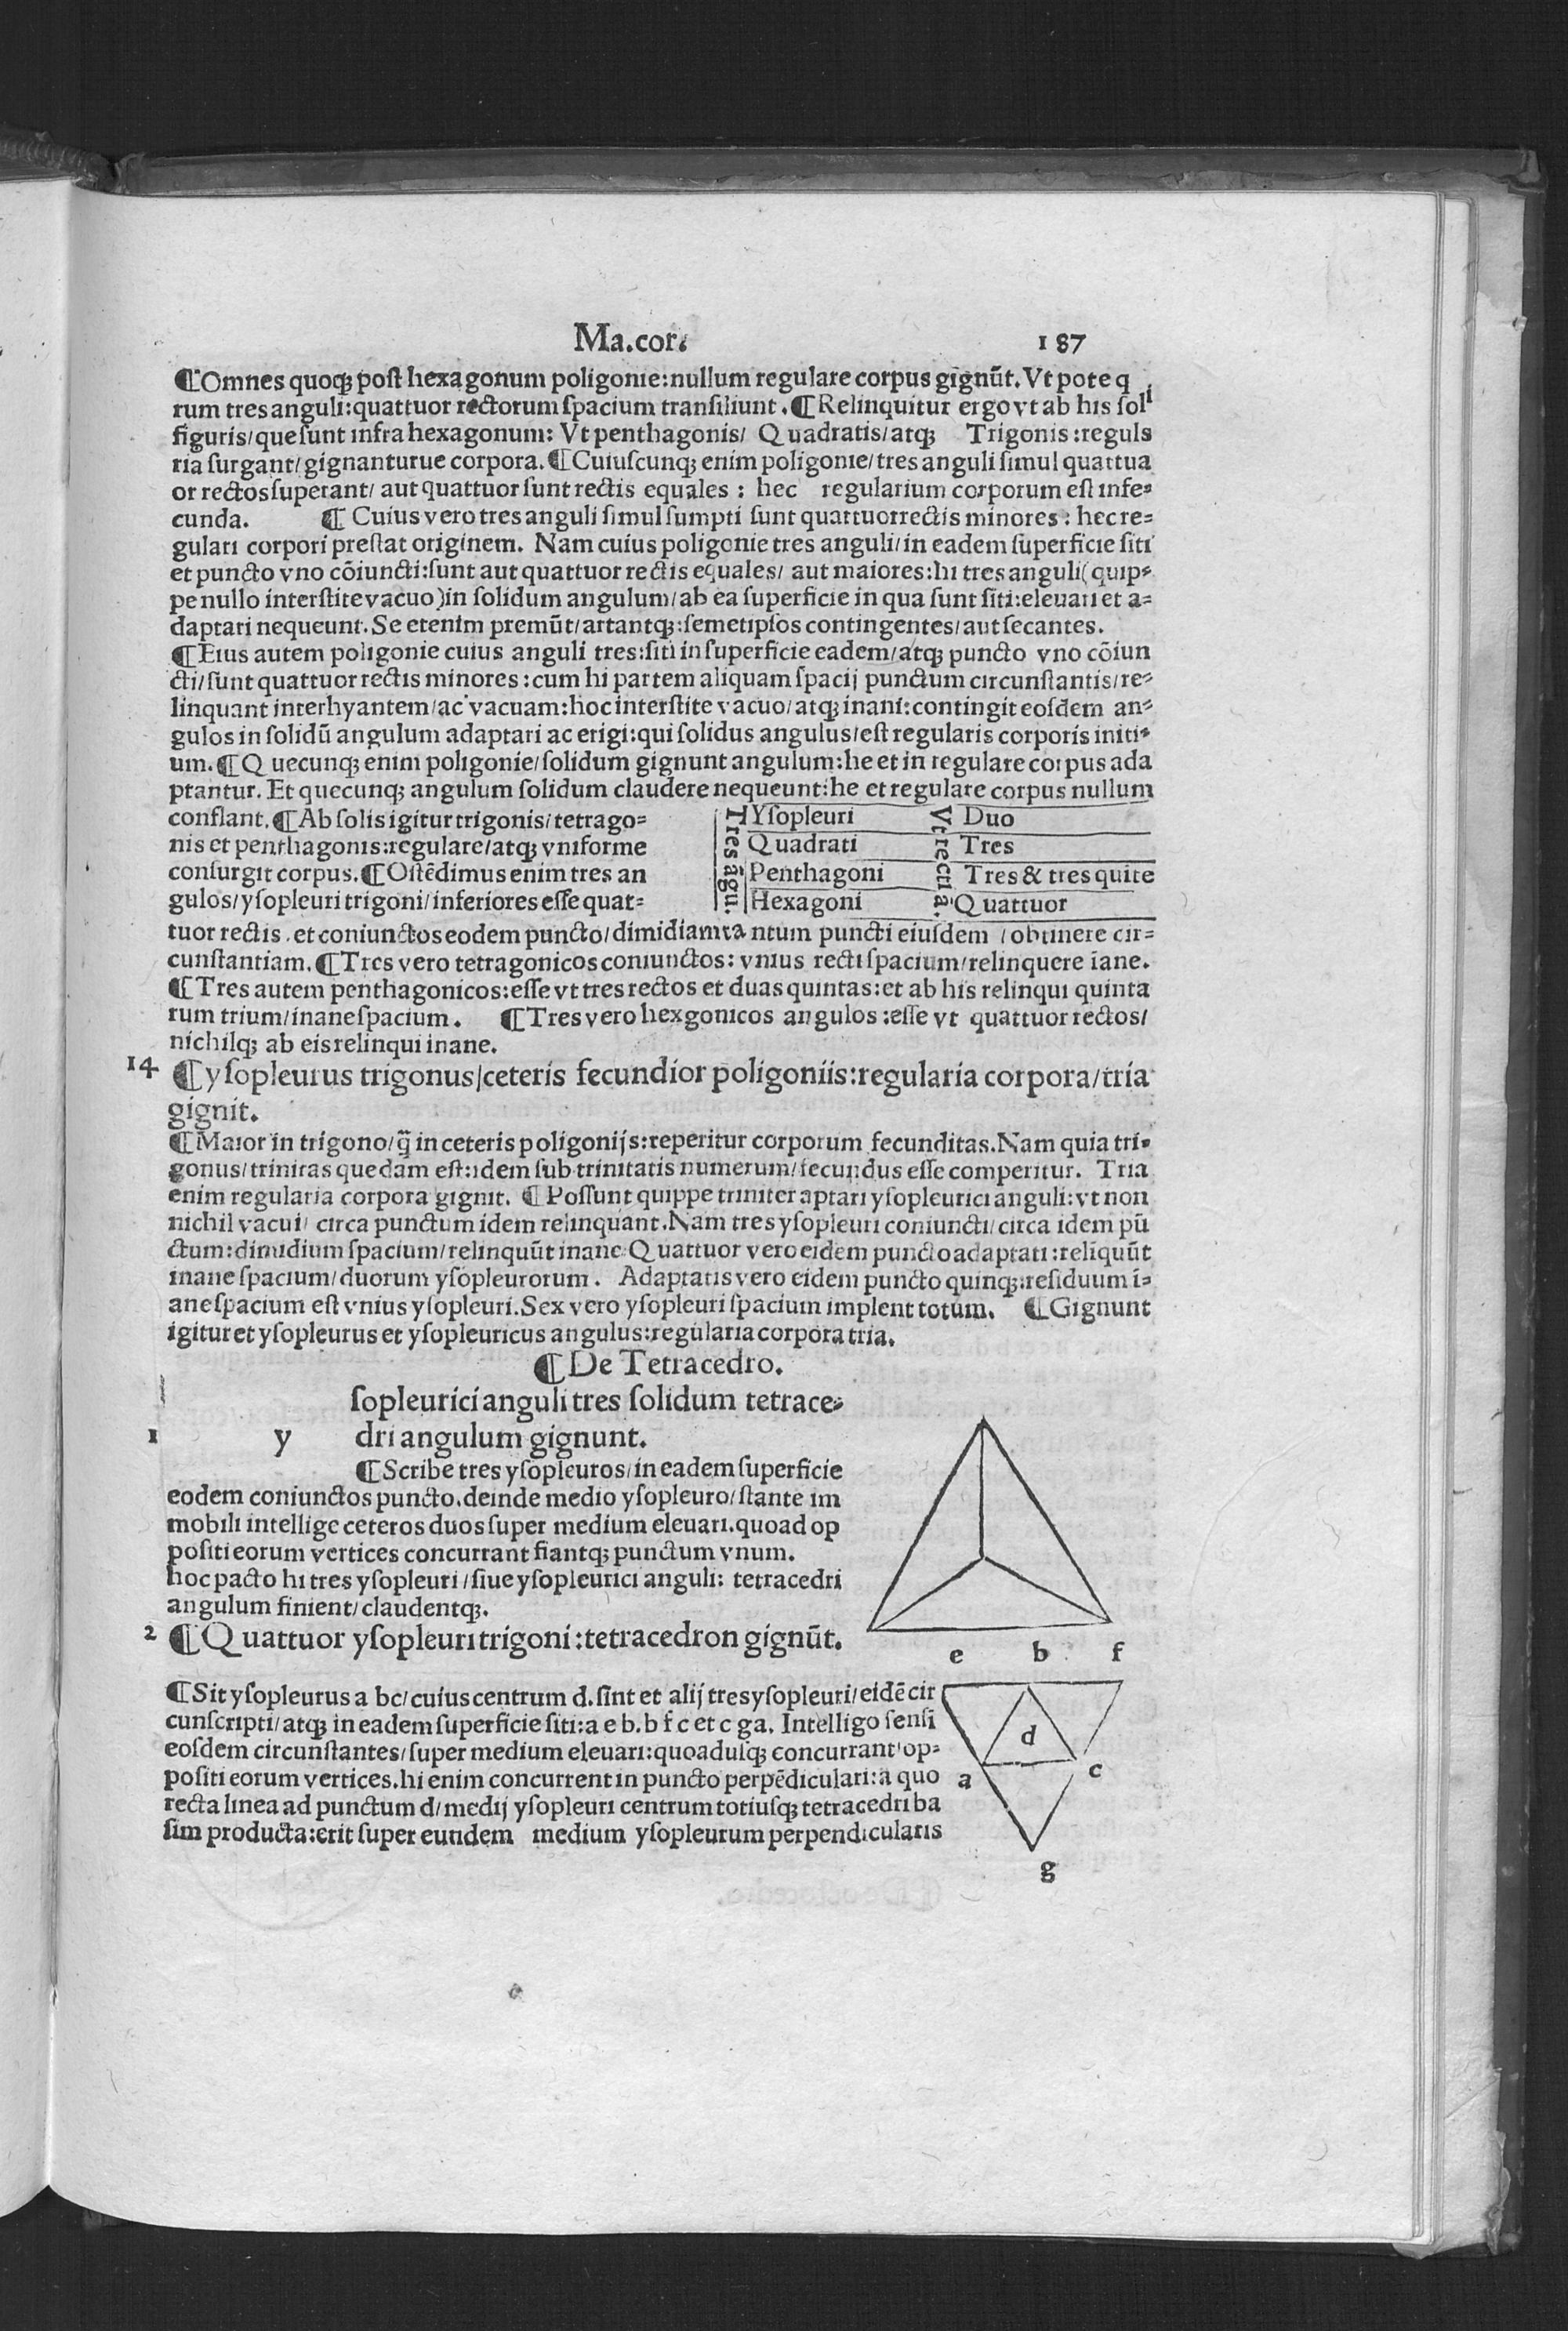 Ma.cor. 187
¶Omnes quoqꝫ post hexagonum poligonie:nullum regulare corpus gignūt.Vt pote q
rum tres anguli:quattuor rectorum spacium transiliunt.¶Relinquitur ergo vt ab his soli
figuris/que sunt infra hexagonum: Vt penthagonis/ Quadratis/atqꝫ Trigonis:reguls
ria surgant/gignanturue corpora.¶Cuiuscunqꝫ enim poligonie/tres anguli simul quattua
or rectos superant/ aut quattuor sunt rectis equales : hec regularium corporum est infe-
cunda. ¶ Cuius vero tres anguli simul sumpti sunt quattuor rectis minores : hec re-
gulari corpori prestat originem. Nam cuius poligonie tres anguli/in eadem superficie siti
et puncto vno cōiuncti:sunt aut quattuor rectis equales/ aut maiores:hi tres anguli(quip-
pe nullo interstite vacuo)in solidum angulum/ab ea superficie in qua sunt siti:eleuari et a-
daptari nequeunt.Se etenim premūt/artantqꝫ:semetipsos contingentes/aut secantes.
¶Eius autem poligonie cuius anguli tres:siti in superficie eadem/atqꝫ puncto vno cōiun
cti/sunt quattuor rectis minores:cum hi partem aliquam spacij punctum circunstantis/re-
linquant interhyantem/ac vacuam:hoc interstite vacuo/atqꝫ inani:contingit eosdem an-
gulos in solidū angulum adaptari ac erigi:qui solidus angulus/est regularis corporis initi-
um.¶Quecunqꝫ enim poligonie/solidum gignunt angulum:he et in regulare corpus ada
ptantur. Et quecunqꝫ angulum solidum claudere nequeunt:he et regulare corpus nullum
conflant.¶Ab solis igitur trigonis/tetrago-
nis et penthagonis:regulare/atqꝫ vniforme
consurgit corpus.¶Ostēdimus enim tres an
gulos/ysopleuri trigoni/inferiores esse quat-
Tres āgu. Vt recti a.
Ysopleuri Duo
Quadrati Tres
Penthagoni Tres & tres quite
Hexagoni Quattuor
tuor rectis.et coniunctos eodem puncto/dimidiam ta ntum puncti eiusdem /obtinere cir-
cunstantiam.¶Tres vero tetragonicos coniunctos: vnius recti spacium/relinquere īane.
¶Tres autem penthagonicos:esse vt tres rectos et duas quintas:et ab his relinqui quinta
rum trium/inane spacium. ¶Tres vero hexgonicos angulos :esse vt quattuor rectos/
nichilqꝫ ab eis relinqui inane.
14 ¶ysopleurus trigonus/ceteris fecundior poligoniis:regularia corpora/tria
gignit.
¶Maior in trigono/q̄ in ceteris poligonijs:reperitur corporum fecunditas.Nam quia tri-
gonus/trinitas quedam est:idem sub trinitatis numerum/fecundus esse comperitur. Tria
enim regularia corpora gignit. ¶Possunt quippe triniter aptari ysopleurici anguli:vt non
nichil vacui/ circa punctum idem relinquant.Nam tres ysopleuri coniuncti/circa idem pū
ctum:dimidium spacium/relinquūt inane Quattuor vero eidem puncto adaptati:relīquūt
inane spacium/duorum ysopleurorum. Adaptatis vero eidem puncto quinqꝫ:residuum ī-
ane spacium est vnius ysopleuri.Sex vero ysopleuri spacium implent totum. ¶Gignunt
igitur et ysopleurus et ysopleuricus angulus:regularia corpora tria.
¶De Tetracedro.
sopleurici anguli tres solidum tetrace-
1 y dri angulum gignunt.
¶Scribe tres ysopleuros/in eadem superficie
eodem coniunctos puncto.deinde medio ysopleuro/stante im
mobili intellige ceteros duos super medium eleuari.quoad op
positi eorum vertices concurrant fiantqꝫ punctum vnum.
hoc pacto hi tres ysopleuri/siue ysopleurici anguli: tetracedri
angulum finient/claudentqꝫ.
2 ¶Quattuor ysopleuri trigoni:tetracedron gignūt.
¶Sit ysopleurus a bc/cuius centrum d.sint et alij tres ysopleuri/eidē cir
cunscripti/atqꝫ in eadem superficie siti:a e b.b f c et c ga. Intelligo sensi
eosdem circunstantes/super medium eleuari:quoadusqꝫ concurrant op-
positi eorum vertices.hi enim concurrent in puncto perpēdiculari:a quo
recta linea ad punctum d/medij ysopleuri centrum totiusqꝫ tetracedri ba
sim producta:erit super eundem medium ysopleurum perpendicularis
e b f
d
a c
g